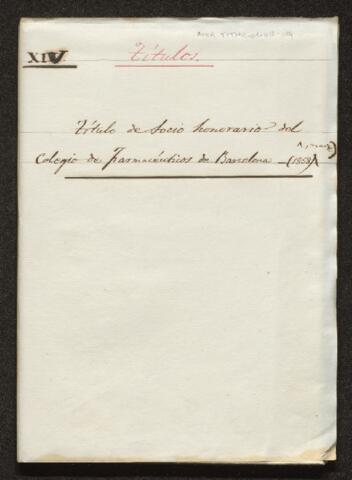 XIV
Títulos.
Título de Socio honorario del
Colegio de Farmacéuticos de Barcelona —(1858)